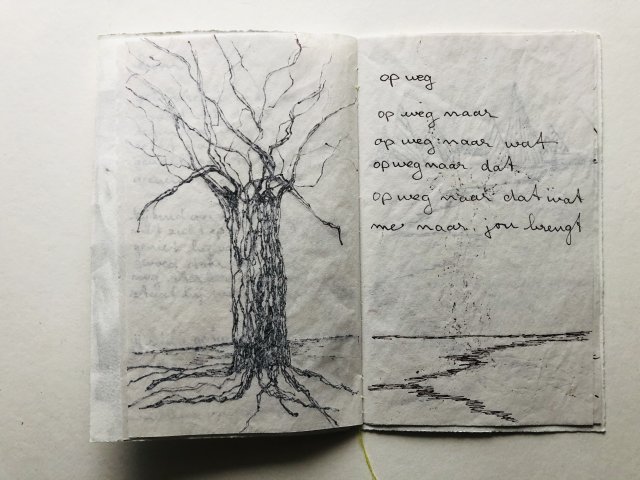 op weg
op weg naar
op weg naar wat
op weg naar dat
op weg naar dat wat
me naar jou brengt